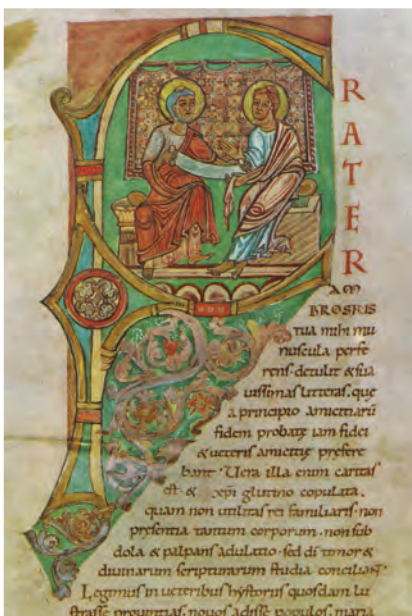 F
R
A
T
E
R
AM
BROSIUS
tua mihi mu
nuscula perfe
rens. detulit & sua
uissimas litteras. quę
a principio amicitiarū
fidem probatę iam fidei
& ueteris amicitię prefere
bant. Uera illa enim caritas
est. & xp̄i glutino copulata.
quam non utilitas rei familiaris. non
presentia tantum corporum. non sub
dola & palpans adulatio. sed dī timor &
diuinarum scripturarum studia conciliant.
Legimus in ueteribus hystoriis quosdam lu
strasse prouintias. nouos adisse populos. mari